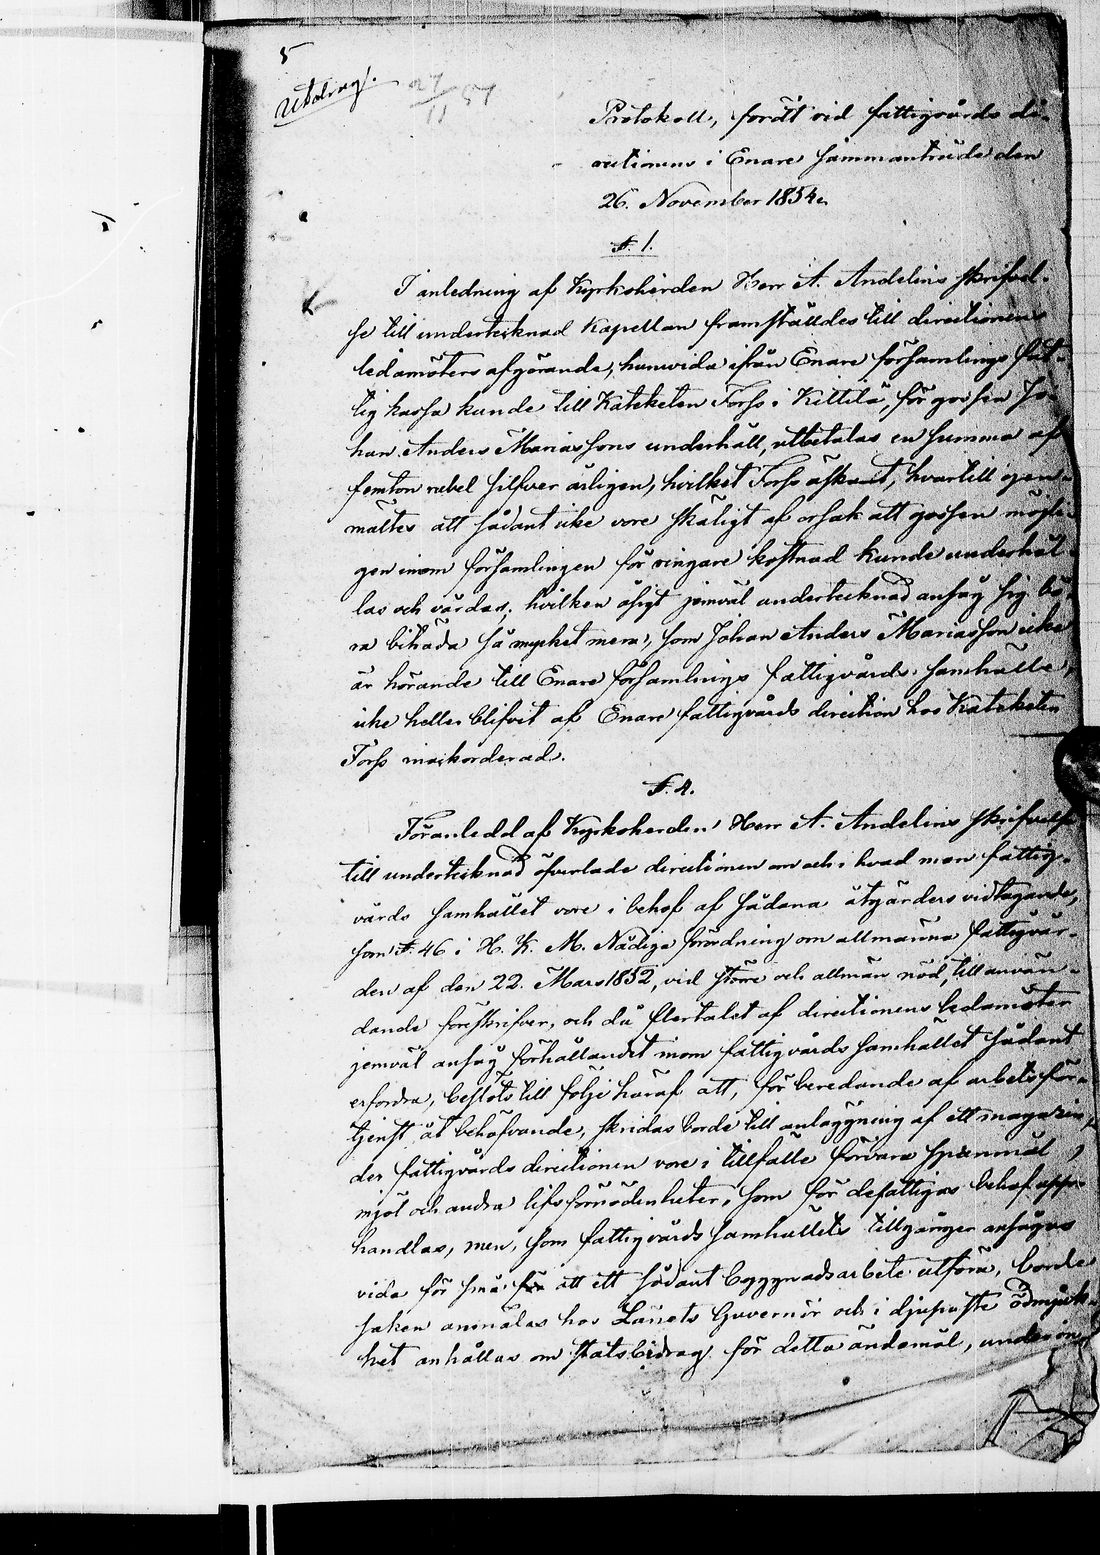 5
Utdrag.
27/11 57
Protokoll, fördt vid fattigvårds di-
rectionens i Enare sammanträde den
26. November 1854.
§. 1.
I anledning af Kyrkoherden Herr A. Andelins skrifvel-
se till undertecknad Kapellan framställdes till directionens
ledamöters afgörande, huruvida ifrån Enare församlings fat-
tig kassa kunde till Kateketen Forss i Kittilä, för gossen Jo-
han Anders Mariassons underhåll, utbetalas en summa af
femton rubel silfver årligen, hvilket Forss äskat, hvartill gen-
mältes att sådant icke vore skäligt af orsak att gossen möjli-
gen inom församlingen för ringare kostnad kunde underhål-
las och vårdas; hvilken åsigt jemväl undertecknad ansåg sig bö-
ra biträda så mycket mera, som Johan Anders Mariasson icke
är hörande till Enare församlings fattigvårds samhälle,
icke heller blifvit af Enare fattigvårds direction hos Kateketen
Forss inackorderad.
§. 4.
Föranledd af Kyrkoherden Herr A. Andelins skrifvelse
till undertecknad öfverlade directionen om och i hvad mon fattig-
vårds samhället vore i behof af sådana åtgärders vidtagande,
som §. 46 i H. K. M. Nådiga förordning om allmänna fattigvår-
den af den 22. Mars 1852, vid större och allmän nöd, till använ-
dande föreskrifver, och då flertalet af directionens ledamöter
jemväl ansåg förhållandet inom fattigvårds samhället sådant
erfordra, beslöts till följe häraf att, för beredande af arbetsför-
tjenst åt behöfvande, skridas borde till anläggning af ett magazin,
der fattigvårds directionen vore i tillfälle förvara spannmål,
mjöl och andra lifsförnödenheter, som för defattigas behof upp-
handlas, men, som fattigvårds samhällets tillgångar ansågos
vida för små för att ett sådant byggnadsarbete utföra, borde
saken anmälas hos Länets Guvernör och i djupaste ödmjuk-
het anhållas om statsbidrag för detta ändamål, under